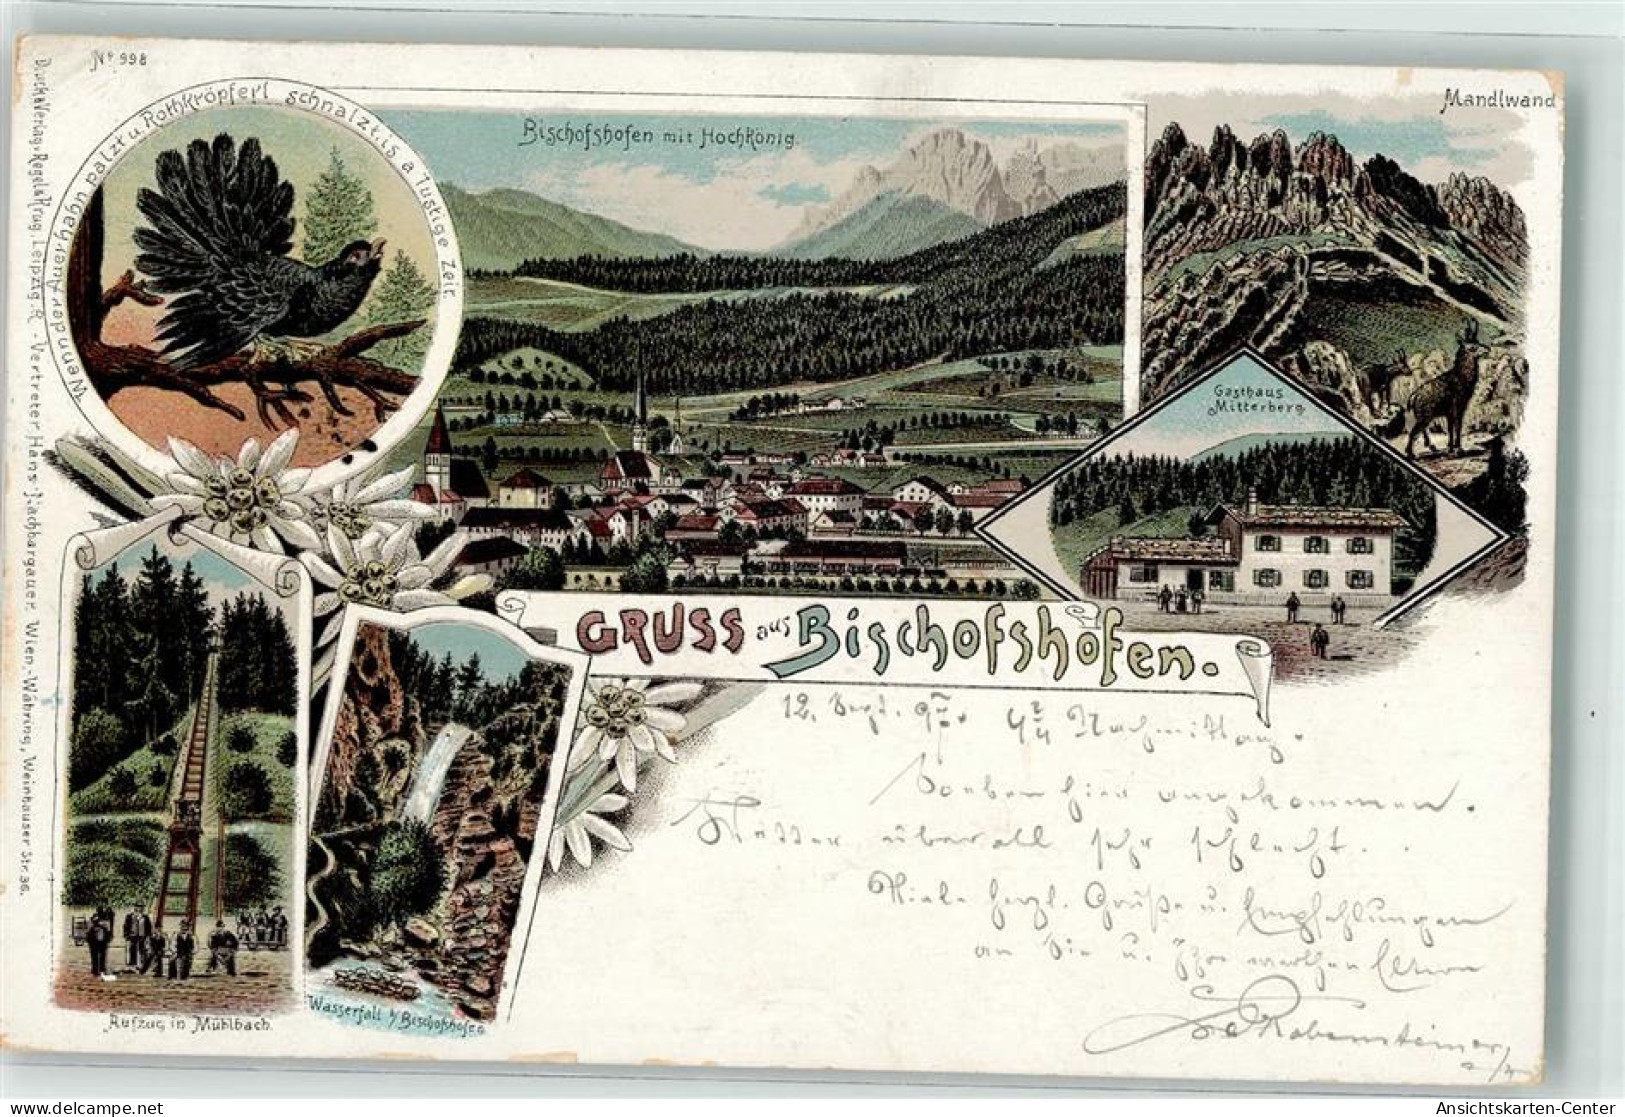 Nº 998
Druck & Verlag v. Regel & Krug, Leipzig-R. - Vertreter Hans Nachbargauer, Wien-Währing, Weinhauser Str. 36.
Wenn der Auerhahn palzt u. Rothkröpferl schnalzt is a lustige Zeit.
Bischofshofen mit Hochkönig.
Mandlwand
Gasthaus
Mitterberg
GRUSS aus Bischofshofen.
12. Sept. 97. Nachmittag.
Soeben hier angekommen.
Wetter überall sehr schlecht.
Viele herzl. Grüße u. Empfehlungen
an Sie u. Ihre werthen Eltern
Rabensteiner
Aufzug in Mühlbach.
Wasserfall b/ Bischofshofen
www.ansichtskartenversand.com
Ansichtskarten-Center